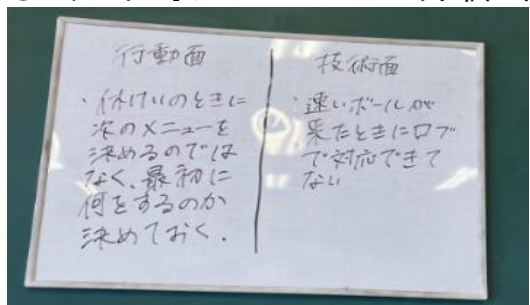 行動面
・休けいのときに
次のメニューを
決めるのでは
なく、最初に
何をするのか
決めておく.
技術面
・速いボールが
来たときにロブ
で対応できて
ない